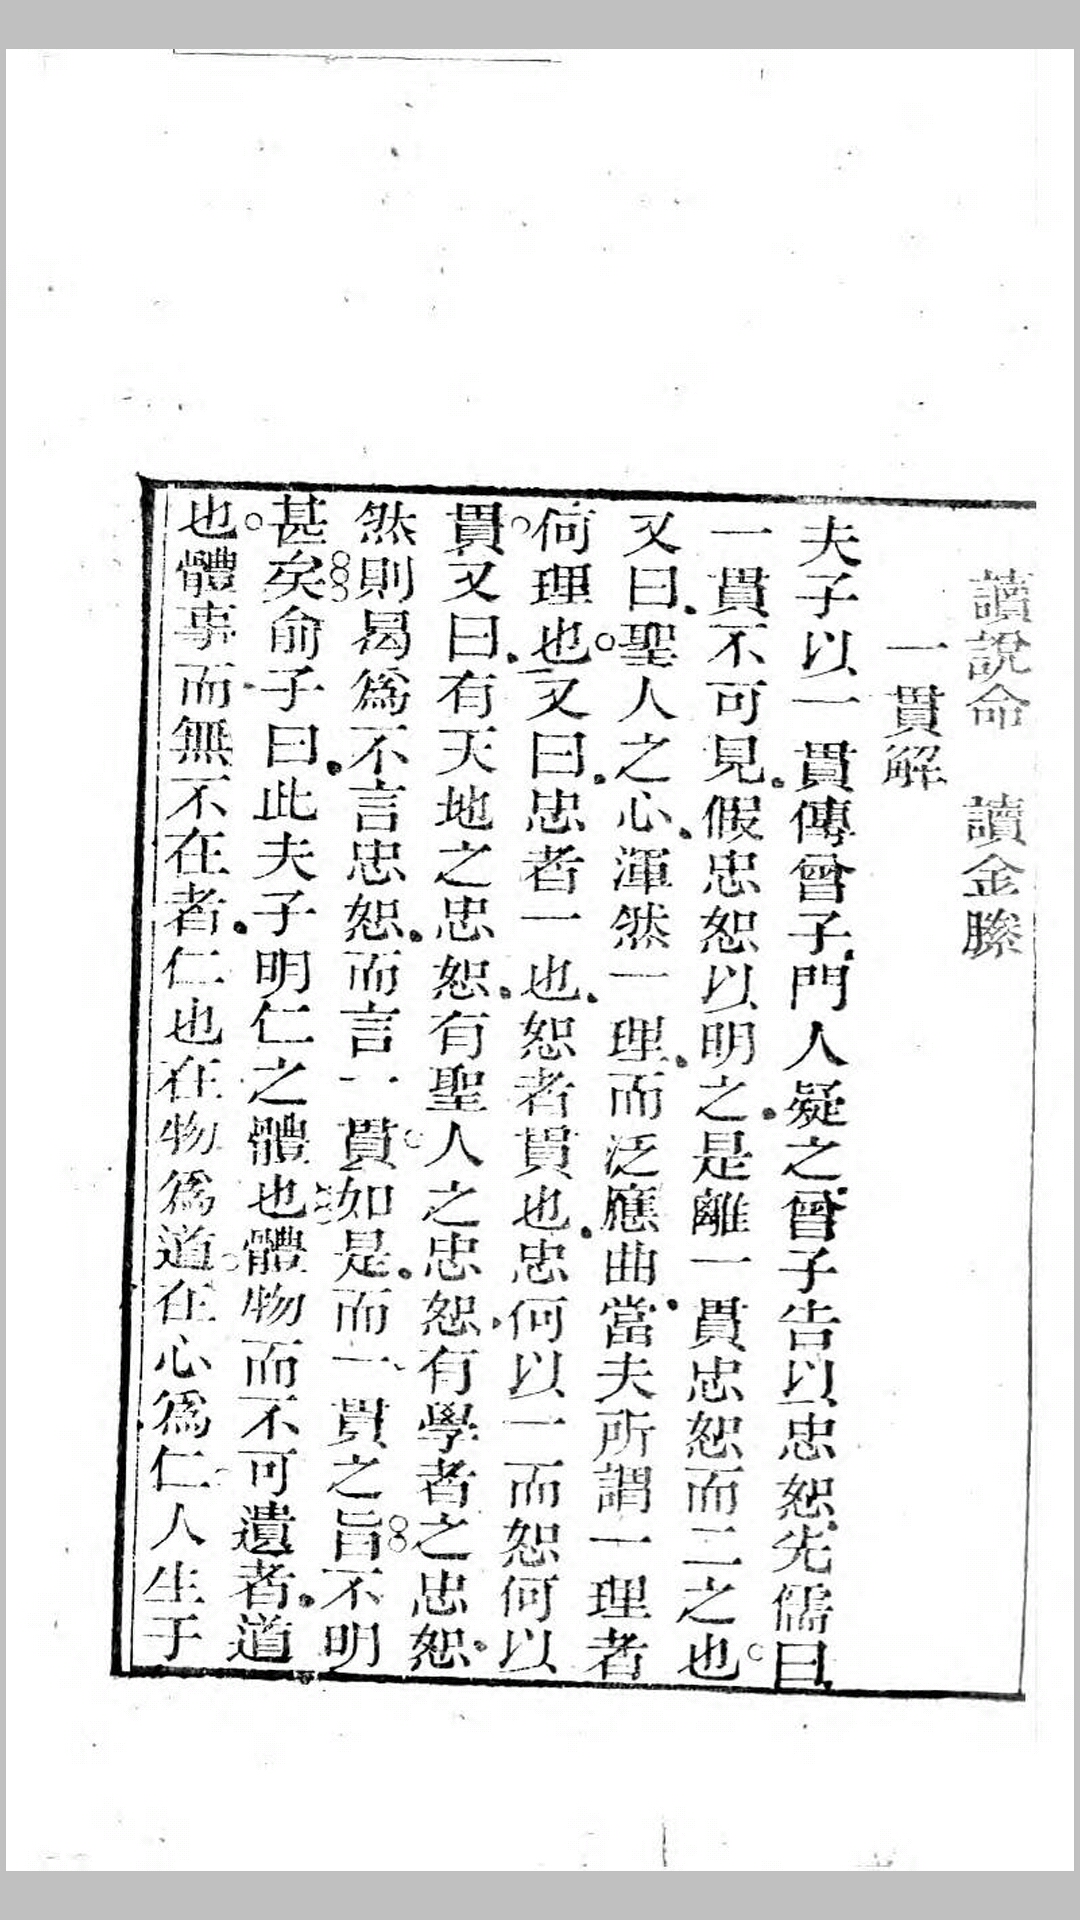 讀說命　讀金縢
一貫解
夫子以一貫傳曾子門人疑之曾子告以忠恕先儒曰
一貫不可見假忠恕以明之是離一貫忠恕而二之也
又曰聖人之心渾然一理而泛應曲當夫所謂一理者
何理也又曰忠者一也恕者貫也忠何以一而恕何以
貫又曰有天地之忠恕有聖人之忠恕有學者之忠恕
然則曷爲不言忠恕而言一貫如是而一貫之旨不明
甚矣俞子曰此夫子明仁之體也體物而不可遺者道
也體事而無不在者仁也在物爲道在心爲仁人生于